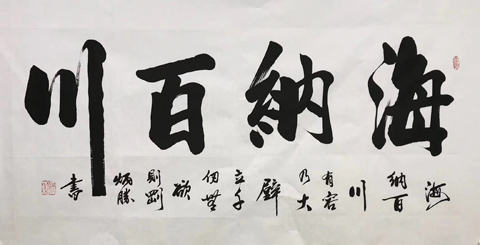 海納百川
海
納百
川
有容
乃大
壁
立千
仞無
欲
則剛
炳勝
書